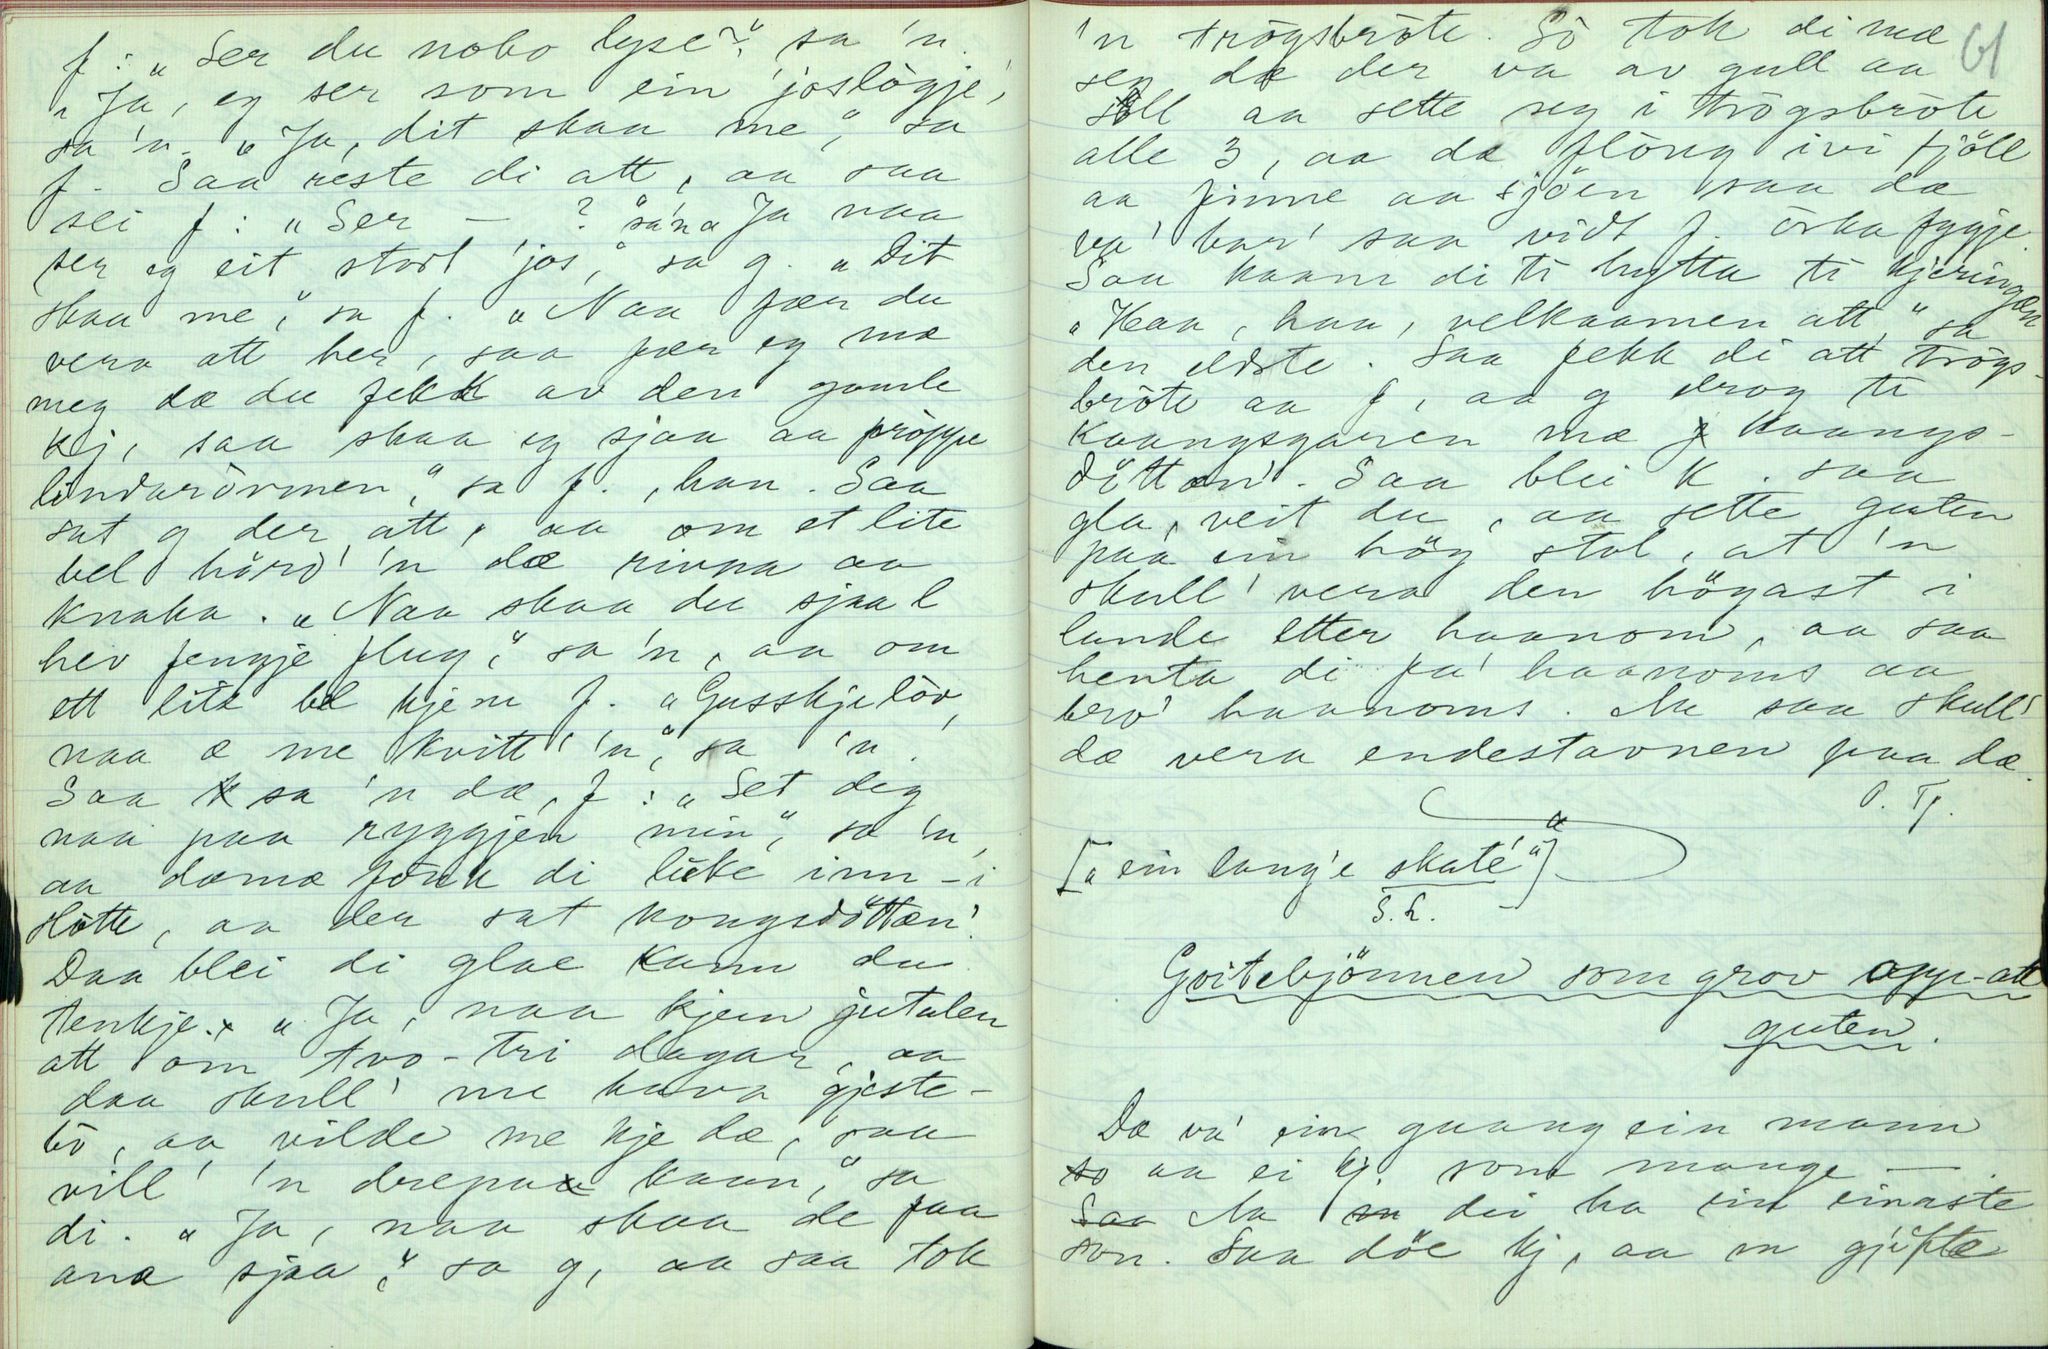 f: „Ser du noko lyse?" sa 'n.
„Ja, eg ser som ein 'joslögje,"
sa 'n. „Ja, dit skaa me," sa
f. Saa reste di att, aa saa
sei f: „Ser — ?" sa 'n „Ja naa
ser eg eit stort 'jos," sa g. „Dit
skaa me," sa f. „Naa fær du
vera att her, saa fær eg mæ
meg dæ du fekk av den gamle
kj, saa skaa eg sjaa aa pröppe
lindarörmen," sa f., han. Saa
sat g der att, aa om et lite
bel hörd' 'n dæ rivna aa
knaka. „Naa skaa du sjaa l
hev fengje flug," sa 'n, aa om
ett lite bel kjem f. „Gusskjelöv,
naa æ me kvitt 'n," sa 'n.
Saa sa 'n dæ, f: „Set deg
naa paa ryggjen min," sa 'n,
aa dæmæ fönk di like inn-i
slotte, aa der sat kongsdöttæn'.
Daa blei di glae kann du
tenkje. „Ja, naa kjem jutulen
att om tvo-tri dagar, aa
daa skull' me hava gjeste-
bö, aa vilde me kje dæ, saa
vill' 'n drepa kaan," sa
di. „Ja, naa skaa de faa
ana sjaa," sa g, aa saa tok
'n trögsbröte. Så tok di mæ
seg dæ der va av gull aa
söll aa sette seg i trögsbröte
alle 3, aa dæ flöug ivi fjöll
aa finne aa sjöen saa dæ
va' bar' saa vidt f. örka fygje.
Saa kaam di ti hytta ti kjeringæn
„Haa, haa, velkaamen att," sa
den eldste. Saa fekk di att trögs-
bröte aa f, aa g drog ti
kaangsgaren mæ kaangs-
döttæn'. Saa blei K. saa
gla, veit du, aa sette guten
paa ein hög stol, at 'n
skull' vera den högast i
lande etter haanom, aa saa
henta di fa' haanoms aa
bro' haanoms. Nu saa skull'
dæ vera endestavnen paa dæ.
O. Tj.
[„ein lang'e skaté"]
S. L.
Gvitebjönnen som grov opp-att
guten.
Dæ va' ein gaang ein mann
aa ei kj. som mange —.
Nu di ha ein einaste
son. Saa döe kj, aa m gjifte
61